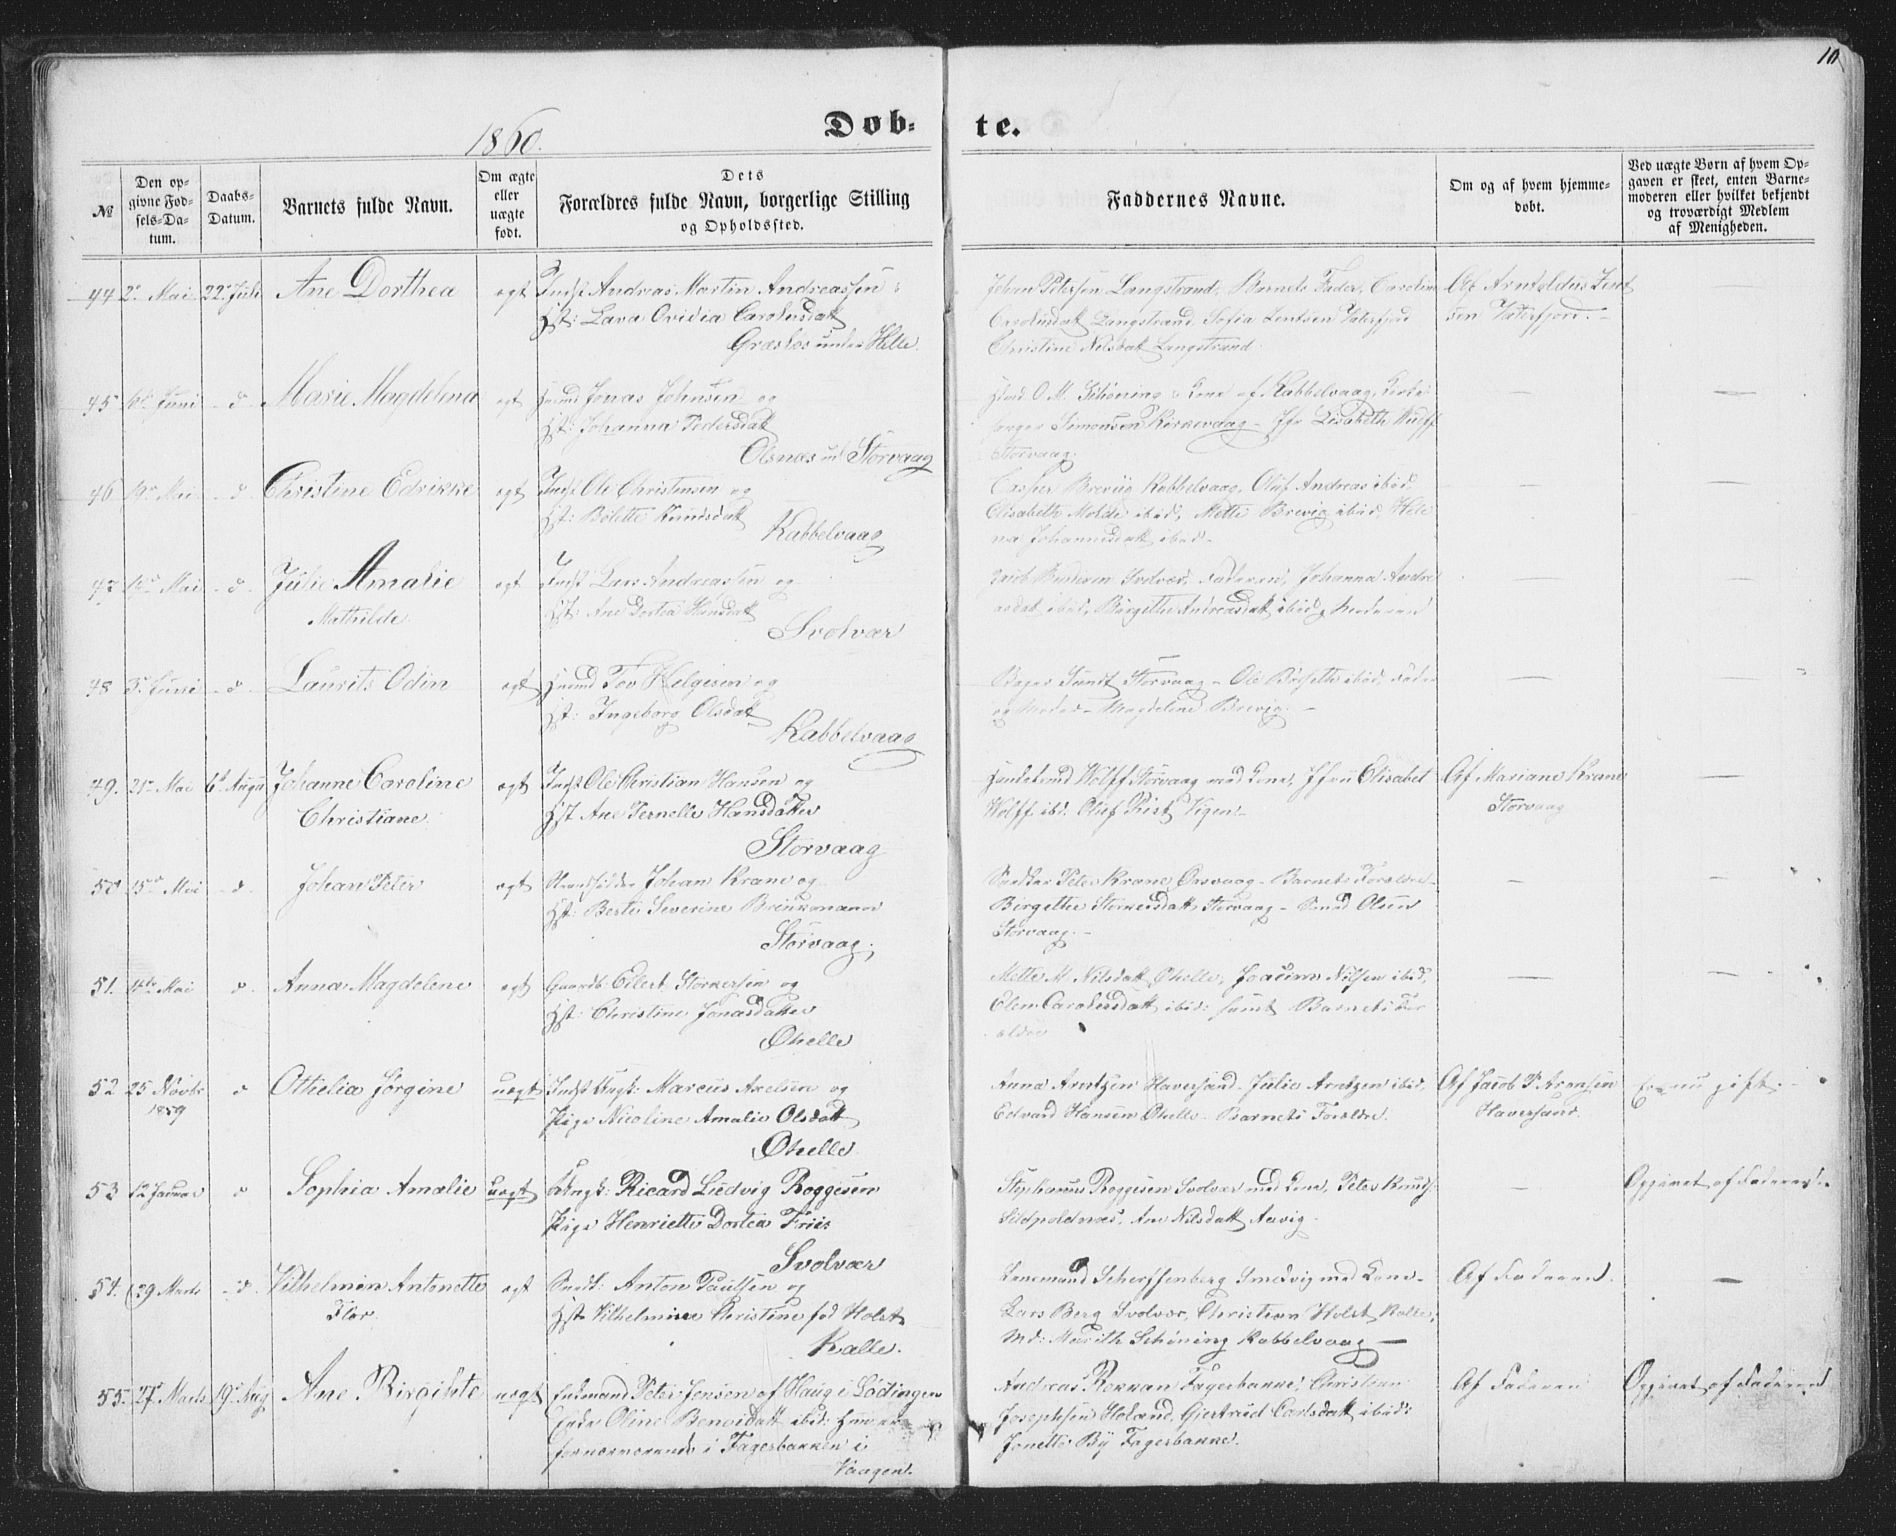 10
1860.
Døb- te.
№
Den op-
givne Fød-
sels-Da-
tum.
Daabs-
Datum.
Barnets fulde Navn.
Om ægte
eller
uægte
født.
Dets
Forældres fulde Navn, borgerlige Stilling
og Opholdssted.
Faddernes Navne.
Om og af hvem hjemme-
døbt.
Ved uægte Børn af hvem Op-
gaven er skeet, enten Barne-
moderen eller hvilket bekjendt
og troværdigt Medlem
af Menigheden.
44 2 Mai 22 Juli Ane Dorthea ægt Indst Andreas Martin Andreassen
Hst: Lava Ovidia Carolusdatt
Græslos under Helle.
Johan Petersen Langstrand, Barnets Fader, Carolin
Carolusdatt Langstrand, Sofia Lentsen Vaterfjord
Christine Nilsdatt Langstrand
45 Juni d Marie Magdelena ægt Huusmd Jonas Johnsen og
Hst: Johanna Pedersdatt
Olsnæs ud Storvaag
O. M. Schøning Kone af Kabbelvaag, Kirke
sanger Simonsen Kirkevaag - Jfr Lisabeth Wulff
Storvaag.
46 19 Mai d Christine Edrikke ægt Indst Ole Christensen og
Hst: Bolette Knudsdatt
Kabbelvaag
Casper Brevig Kabbelvaag, Oluf Andreas ibid,
Elisabeth Molde ibid, Mette Brevig ibid, Hele
na Johannesdatt ibid.
47 Mai d Julie Amalie ægt Indst Lars Andreassen og
Mathilde
Hst: Ane Dortea Hansdatt
Svolvær
Svolvær, Faderen, Johanna Andre
asdatt ibid, Birgethe Andreasdatt ibid, Moderen
48 3 Juni d Laurits Odin ægt Huusmd Tov Helgesen og
Hst: Ingeborg Olsdatt
Kabbelvaag
Bager Sundt Storvaag - Ole ibid, Fader
og Moder - Magdelene Brevig.
49. 21 Mai 6 Augu Johanne Caroline ægt Indst Ole Christian Hansen og
Christiane.
Hst Ane Pernelle Hansdatter
Storvaag
Wolff Storvaag med Kone, Jfru Elisabet
Wolff ibd. Oluf Krist Vigen.
Af Mariane Krane
Storvaag
50 15 Mai d Johan Peter ægt Strandsidder Johan Krane og
Hst: Berte Severine Brinkmann
Storvaag.
Peter Krane Ørsvaag - Barnets Forældre
Birgethe Storkersdatt Storvaag - Olsen
Storvaag.
51. 14de Mai d Anna Magdelene ægt Gaardb Eilert Storkersen og
Hst: Christine Jonasdatter
Øhelle
Mette M Nilsdatt Øhelle, Joacim Nilsen ibid,
Elen Carolusdatt ibid: samt Barnets For
ældre
52 25 Novbr
1859 d Othelia Jørgine uægt Indst Ungk: Marcus Axelsen og
Pige Nicoline Amalie Olsdatt
Øhelle
Anna Arntzen Haversand, Julie Arntzen ibid,
Edvard Hansen Øhelle - Barnets Forældre.
Af Jacob P. Arensen
Haversand.
Er nu gift.
53 12 Januar d Sophia Amalie uægt Ungk: Ricard Ludvig Roggesen
Pige Henriette Dortea Friis
Svolvær
Roggesen Svolvær med Kone, Peter Knuds:
Sildpoldnæs, Ane Nilsdatt Aavig.
Opgivet af Faderen
54. 29 Marts d Vilhelmine Antonette ægt Anton Paulsen og
Flor.
Hst Vilhelmine Christine fød Holst
Kalle.
Lensmand Scherffenberg Smedvig med Kone
Lars Berg Svolvær, Christian Holst Kalle,
Md: Marith Schøning Kabbelvaag
Af Faderen.
55. 27 Marts 19 Aug Ane Birgitte uægt Enkemand Peter Jensen af Haug i Lødingen
Enke Oline Bensdatt ibid: Hun er
fornærværende i Fagerbakken i
Vaagen.
Andreas Rekkan Fagerbakke, Christian
Josephsen Holand, Gjertrud Carlsdatt ibid:
Jonette By Fagerbakke.
Af Faderen
Opgivet af Faderen